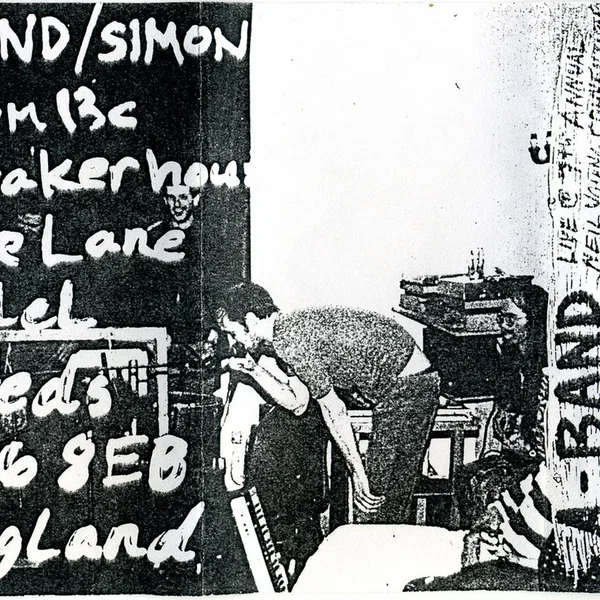 ND/SIMON
om 13c
akerhous
e Lane
LeL
eds
6 8EB
gland
A-BAND
LIVE @ 5TH ANNUAL
NEIL YOUNG CONVENTION